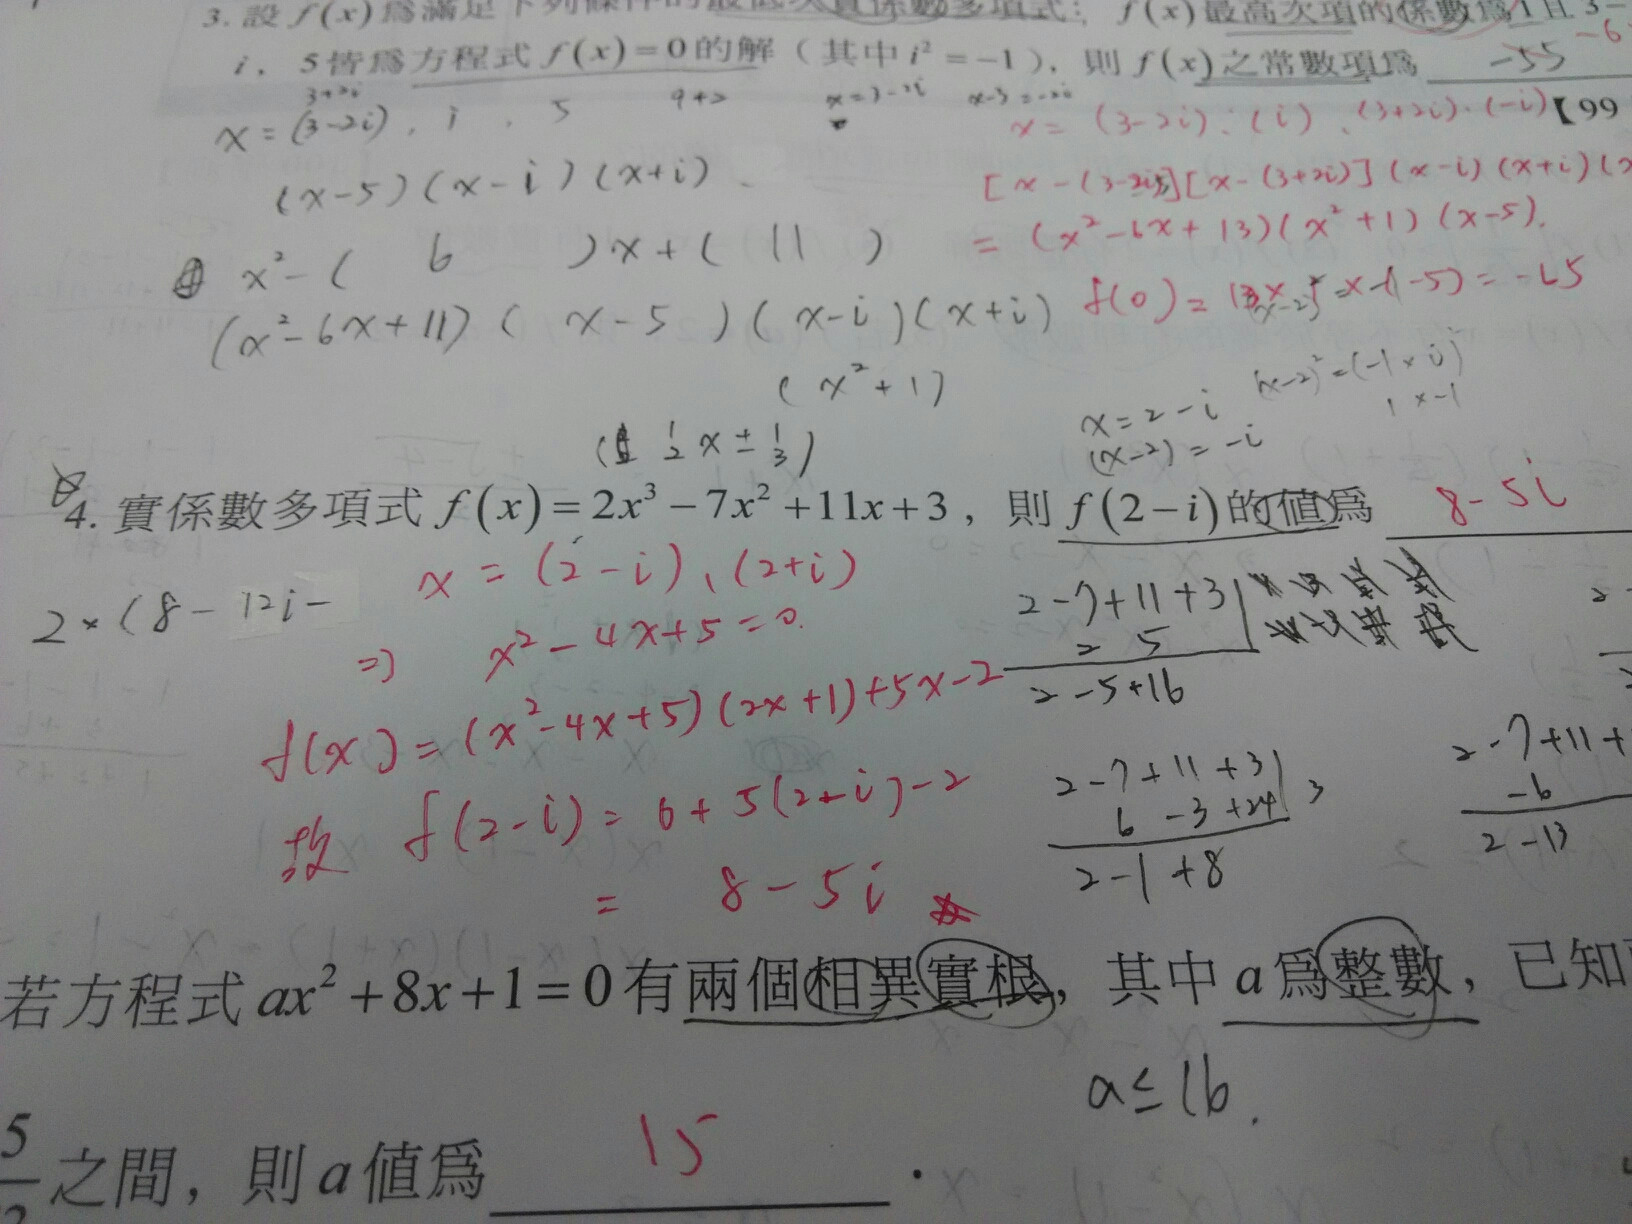 3. 設 f(x) 為滿足下列條件的最低次實係數多項式：f(x) 最高次項的係數為 1 且 3-
i，5 皆為方程式 f(x)=0 的解（其中 i² = -1），則 f(x) 之常數項為 -55 -6
3+2i
x = (3-2i) , i , 5
9+2
x=3-2i x-3=-2i
x = (3-2i)、(i)、(3+2i)、(-i)【99
(x-5)(x-i)(x+i)
[x-(3-2i)][x-(3+2i)](x-i)(x+i)(x
x² - ( 6 )x + ( 11 )
= (x²-6x+13)(x²+1)(x-5).
(x²-6x+11)(x-5)(x-i)(x+i)
f(0) = 13 × (-5) = -65
(x²+1)
x = 2-i
(x-2) = -i
(x-2)² = (-1×i)²
1×-1
( ½x ± ⅓)
4. 實係數多項式 f(x) = 2x³ - 7x² + 11x + 3，則 f(2-i) 的值為 8-5i
2×(8-12i-
x = (2-i)、(2+i)
⇒ x²-4x+5=0.
f(x) = (x²-4x+5)(2x+1)+5x-2
故 f(2-i) = 6+5(2-i)-2
= 8-5i
2-7+11+3
2 5
2-5+16
2-7+11+3 3
6 -3 +24
2-1+8
2-7+11+
-6
2-13
若方程式 ax² + 8x + 1 = 0 有兩個相異實根，其中 a 為整數，已知
a ≤ 16.
5
之間，則 a 值為 15 .